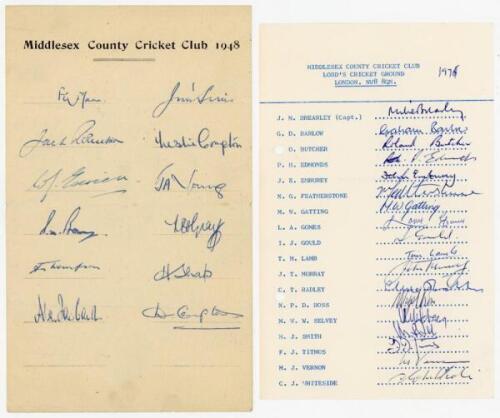 Middlesex County Cricket Club 1948
Jim Sims
Jack Robertson
Leslie Compton
J A Young
L.H. Gray
A Thompson
H Sharp
D Compton
MIDDLESEX COUNTY CRICKET CLUB
LORD'S CRICKET GROUND
LONDON, NW8 8QN.
1976
J. M. BREARLEY (Capt.) Mike Brearley
G. D. BARLOW Graham Barlow
R. O. BUTCHER Roland Butcher
P. H. EDMONDS P. Edmonds
J. E. EMBUREY John Emburey
N. G. FEATHERSTONE N. G. Featherstone
M. W. GATTING M. W. Gatting
L. A. GOMES Larry Gomes
I. J. GOULD I. Gould
T. M. LAMB Tim Lamb
J. T. MURRAY John Murray
C. T. RADLEY Clive Radley
N. P. D. ROSS
M. W. W. SELVEY
M. J. SMITH
F. J. TITMUS F. J. Titmus
M. J. VERNON M. Vernon
C. J. WHITESIDE